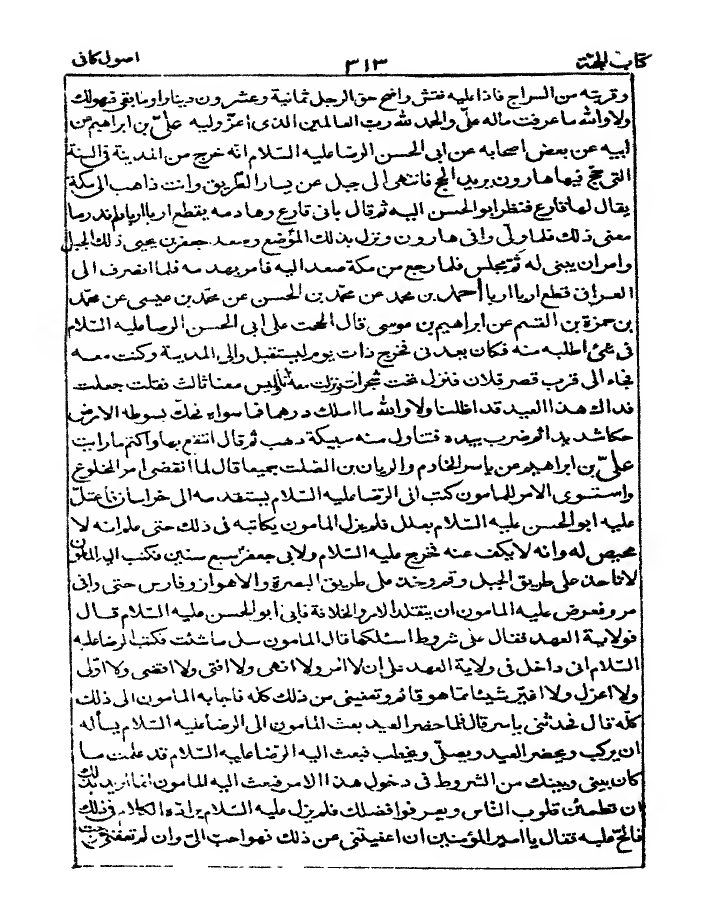 كتاب الحجة ٣١٣ اصول كافى
وقربته من السراج فاذا عليه نقش واضح حق الرجل ثمانية وعشرون دينارا وما بقى فهو لك
ولا والله ما عرفت ماله علىّ والحمد لله رب العالمين الذى اعزّ وليه علىّ بن ابراهيم عن
ابيه عن بعض اصحابه عن ابى الحسن الرضا عليه السّلام انه خرج من المدينة فى السنة
التى حجّ فيها هارون يريد الحج فانتهى الى جبل عن يسار الطريق وانت ذاهب الى مكة
يقال لها فارع فنظر ابو الحسن اليه ثم قال بانى فارع وهادمه يقطع اربا اربا فلم ندر ما
معنى ذلك فلما ولّى وافى هارون ونزل بذلك الموضع وصعد جعفر بن يحيى ذلك الجبل
وامر ان يبنى له ثم مجلس فلما رجع من مكة صعد اليه فامر بهدمه فلما انصرف الى
العراق قطع اربا اربا أحمد بن محمد عن محمد بن الحسن عن محمد بن عيسى عن محمد
بن حمزة بن القسم عن ابراهيم بن موسى قال الححت على ابى الحسن الرضا عليه السّلام
فى شئ اطلبه منه فكان يعدنى فخرج ذات يوم ليستقبل والى المدينة وكنت معه
فجاء الى قرب قصر فلان فنزل تحت شجرات ونزلت معه انا وليس معنا ثالث فقلت جعلت
فداك هذا العيد قد اظلنا ولا والله ما املك درهما فما سواه فحك بسوطه الارض
حكا شديدا ثم ضرب بيده فتناول منه سبيكة ذهب ثم قال انتفع بها واكتم ما رايت
علىّ بن ابراهيم عن ياسر الخادم والريان بن الصّلت جميعا قال لما انقضى امر المخلوع
واستوى الامر للمامون كتب الى الرّضا عليه السّلام يستقدمه الى خراسان فاعتلّ
عليه ابو الحسن عليه السّلام بعلل فلم يزل المامون يكاتبه فى ذلك حتى علم انه لا
محيص له وانه لا يكف عنه فخرج عليه السّلام ولابى جعفر سبع سنين فكتب اليه المامون
لا تاخذ على طريق الجبل وقم وخذ على طريق البصرة والاهواز وفارس حتى وافى
مرو فعرض عليه المامون ان يتقلد الامر والخلافة فابى ابو الحسن عليه السّلام قال
فولاية العهد فقال على شروط اسئلكها قال المامون سل ما شئت فكتب الرضا عليه
السّلام انى داخل فى ولاية العهد على ان لا آمر ولا انهى ولا افتى ولا اقضى ولا اولّى
ولا اعزل ولا اغيّر شيئا مما هو قائم وتعفينى من ذلك كله فاجابه المامون الى ذلك
كلّه قال فحدثنى ياسر قال فلما حضر العيد بعث المامون الى الرضا عليه السّلام يسأله
ان يركب ويحضر العيد ويصلّى ويخطب فبعث اليه الرّضا عليه السّلام قد علمت ما
كان بينى وبينك من الشروط فى دخول هذا الامر فبعث اليه المامون انما اريد بذلك
ان تطمئن قلوب النّاس ويعرفوا فضلك فلم يزل عليه السّلام يرادّه الكلام فى ذلك
فالحّ عليه فقال يا امير المؤمنين ان اعفيتنى عن ذلك فهو احبّ الىّ وان لم تعفنى خرجت